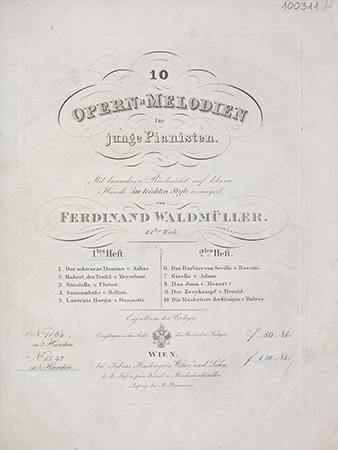 100311
10
OPERN-MELODIEN
für
junge Pianisten.
Mit besonderer Rücksicht auf kleine
Hände im leichten Style arrangirt
von
FERDINAND WALDMÜLLER.
1tes Heft.
2tes Heft.
1. Der schwarze Domino v. Auber.
2. Robert, der Teufel v. Meyerbeer.
3. Stradella v. Flotow.
4. Sonnambula v. Bellini.
5. Lucrezia Borgia v. Donizetti.
6. Der Barbier von Sevilla v. Rossini.
7. Gisella v. Adam
8. Don Juan v. Mozart.
9. Der Zweykampf v. Herold.
10. Die Musketiere der Königin v. Halevy.
Eigenthum der Verleger
zu 2 Händen.
Eingetragen in das Archiv der Musikalien Verleger.
zu 4 Händen.
WIEN,
bei Tobias Haslinger's Witwe und Sohn,
k. k. Hof u. priv. Kunst u. Musikalienhändler
Leipzig bei B. Hermann.